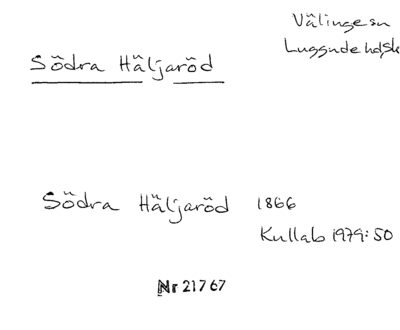 Välinge sn
Luggude hd, Sk
Södra Häljaröd
Södra Häljaröd 1866
Kullab 1979: 50
Nr 21767